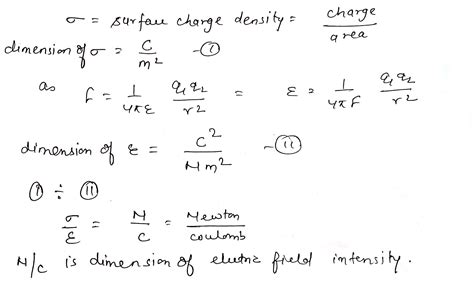 σ = surface charge density = charge / area
dimension of σ = C / m² - (i)
as F = 1 / 4πε q₁q₂ / r² = ε = 1 / 4πF q₁q₂ / r²
dimension of ε = C² / Nm² - (ii)
(i) ÷ (ii)
σ / ε = N / C = Newton / coulomb
N/c is dimension of electric field intensity.